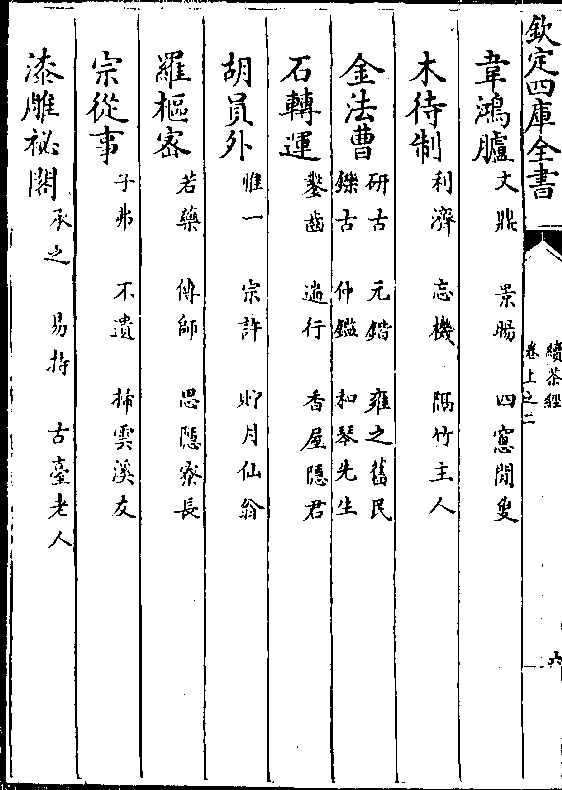 欽定四庫全書
續茶經
卷上之二
六
韋鴻臚 文鼎 景暘 四窻閒叟
木待制 利濟 忘機 隔竹主人
金法曹 研古 元鍇 雍之舊民
鑠古 仲鑑 和琴先生
石轉運 鑿齒 遄行 香屋隱君
胡員外 惟一 宗許 貯月仙翁
羅樞密 若藥 傅師 思隱寮長
宗從事 子弗 不遺 掃雲溪友
漆雕祕閣 承之 易持 古臺老人